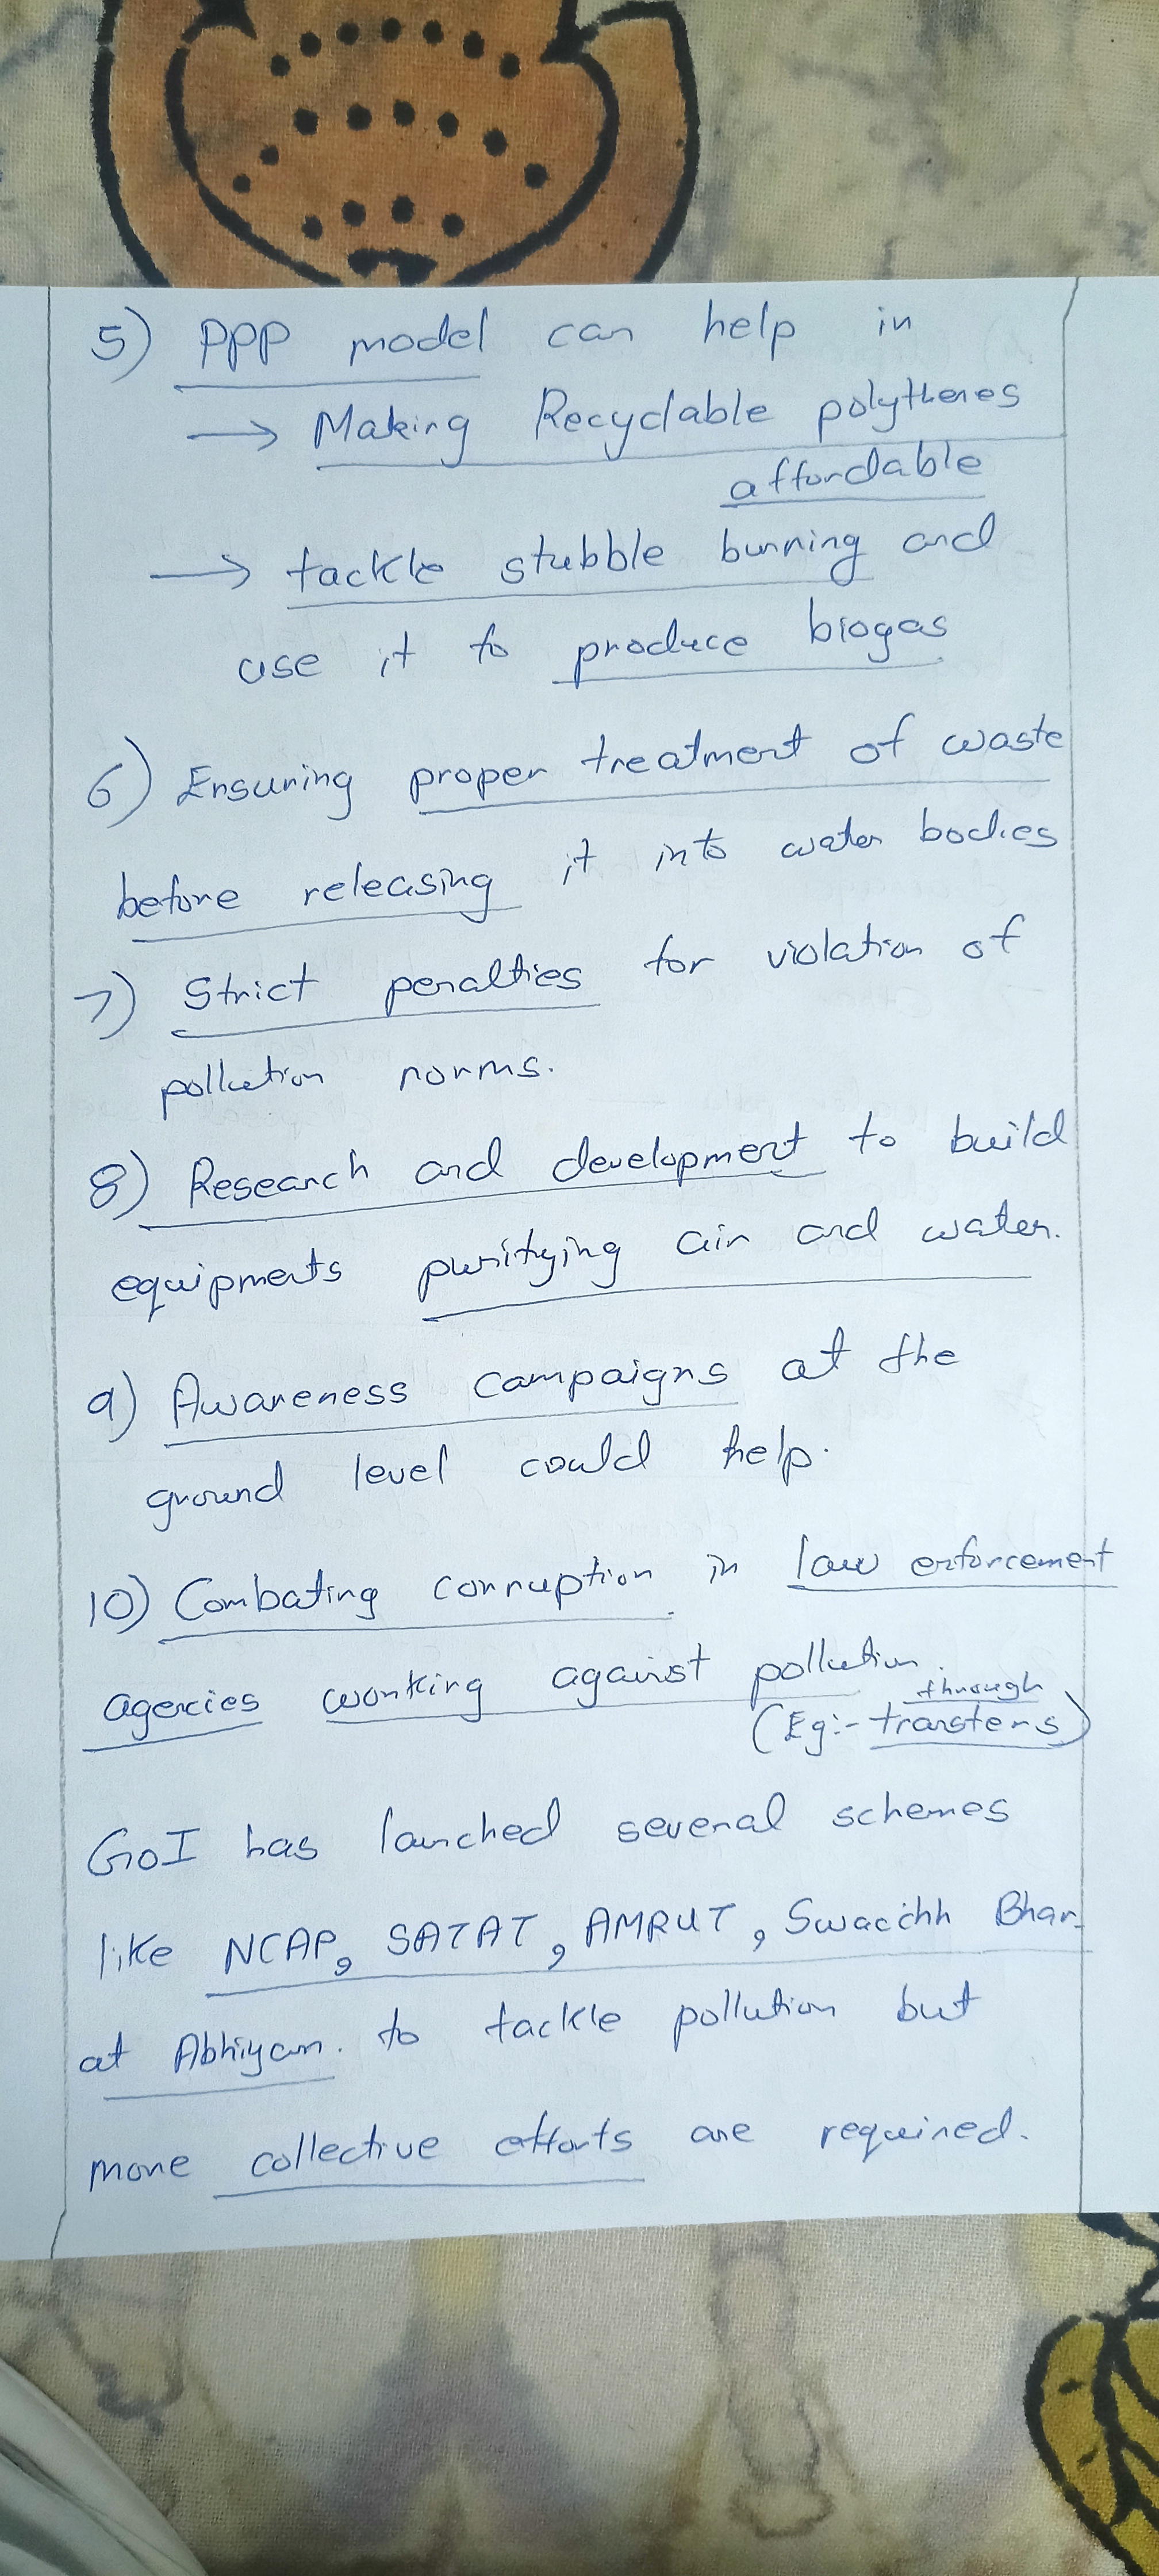 5) PPP model can help in
→ Making Recyclable polythenes
affordable
→ tackle stubble burning and
use it to produce biogas
6) Ensuring proper treatment of waste
before releasing it into water bodies
7) Strict penalties for violation of
pollution norms.
8) Research and development to build
equipments purifying air and water.
9) Awareness campaigns at the
ground level could help.
10) Combating corruption in law enforcement
agencies working against pollution.
(Eg:- through transfers)
GoI has launched several schemes
like NCAP, SATAT, AMRUT, Swacchh Bhar-
at Abhiyan. to tackle pollution but
more collective efforts are required.